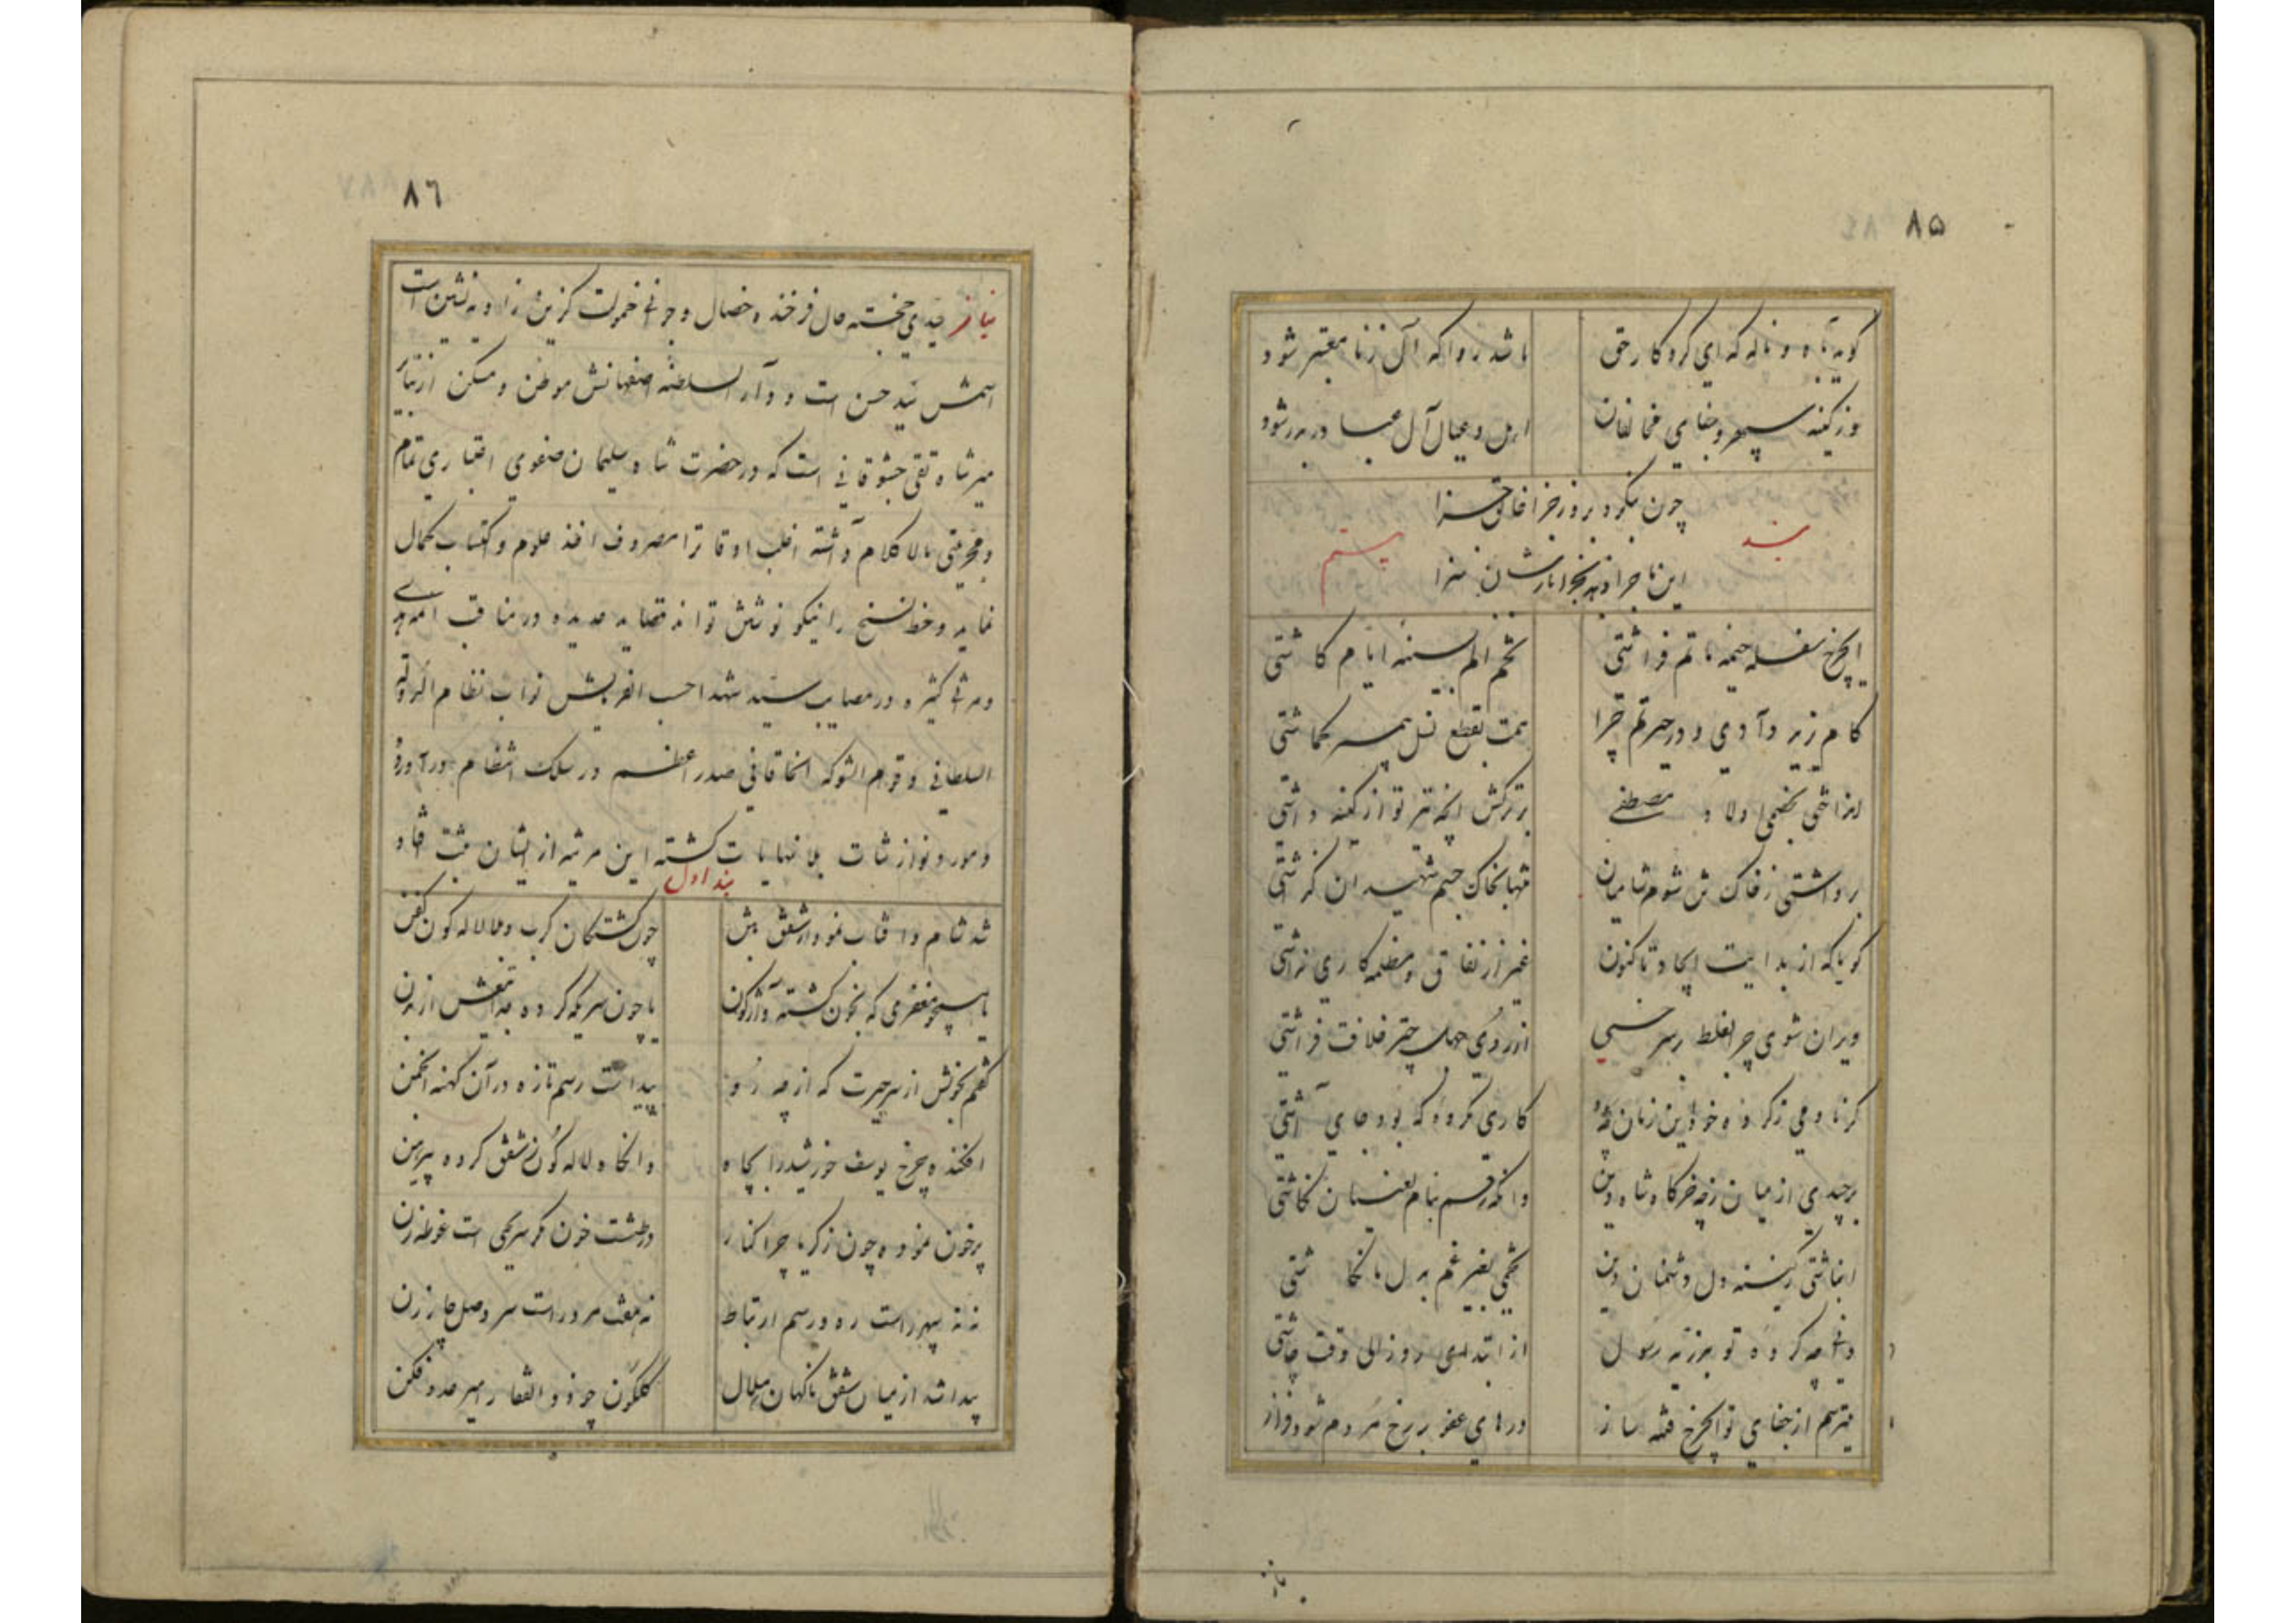 ۸۵
گوید به آه و ناله که ای کردگار حق باشد روا که آل زنا معتبر شود
وز کینه سپهر و جفای مخالفان اهل و عیال آل عبا در بدر شود
چون بگرود بروز جزا خالق جزا
بند این ماجرا دهد بجز ایشان سزا بیستم
ایچرخ سفله خیمه ماتم فراشتی تخم الم بسینه ایام کاشتی
کام یزید دادی و در حیرتم چرا همت بقطع نسل پیمبر گماشتی
انداختی بخصمی اولاد مصطفی بر ترکش آنچه تیر تو از کینه داشتی
برداشتی ز خاک تن شوم شامیان تنها بخاک جسم شهیدان گذاشتی
گویا که از بدایت ایجاد تا کنون غیر از نفاق و مظلمه کاری نداشتی
ویران شوی چرا بغلط بر سر خسی از روی جهل چتر خلافت فراشتی
گر نادمی ز کرده خود این زمان چه سود کاری نکرده که بود جای آشتی
برچیدی از میان ز چه خرگاه شاه دین وانگه رقم بنام لعینان نگاشتی
انباشتی ز کینه دل دشمنان دین تخمی بغیر غم بدل ما نکاشتی
دانی چه کرده تو بفرزند رسول از ابتدای روز الی وقت چاشتی
میترسم از جفای تو ایچرخ فتنه ساز درهای عفو بر رخ مردم شود فراز
۸٦
نیاز سیدی خجسته حال فرخنده خصال و جوانی خمولت گزین زاویه نشین است
اسمش سید حسن است و دار السلطنه اصفهانش موطن و مسکن از نبایر
میر شاه تقی جوشقانی است که در حضرت شاه سلیمان صفوی اعتباری تمام
و محرمیتی مالا کلام داشته اغلب اوقات را مصروف اخذ علوم و اکتساب کمال
نماید و خط نسخ را نیکو نوشتن تواند قصاید عدیده در مناقب ائمه هدی
و مراثی کثیره در مصایب سید شهدا حسب الفرمایش نواب نظام الدوله
السلطانی و قوام الشوکه الخاقانی صدر اعظم در سلک انتظام درآورده
و مورد نوازشات بلا نهایات گشته این مرثیه از ایشان ثبت افتاد
بند اول
شد شام و آفتاب نمود از شفق بتن چون کشتگان کرب و بلا لاله گون کفن
یا همچو مغفری که بخون گشته واژگون یا چون سری که کرده جدا تیغش از بدن
گفتم بخویش از سر حیرت که از چه رو پیداست رسم تازه در آن کهنه انجمن
افکنده چرخ یوسف خورشید را بچاه وانگاه لاله گون ز شفق کرده پیرهن
پر خون نموده چون زکریا چرا کنار در طشت خون مگر سر یحیی است غوطه زن
نه نه سپهر راست ره و رسم ارتباط نه هفت مرد راست سر وصل چار زن
پیدا شد از میان شفق ناگهان هلال گلگون چو ذوالفقار امیر عدو فکن